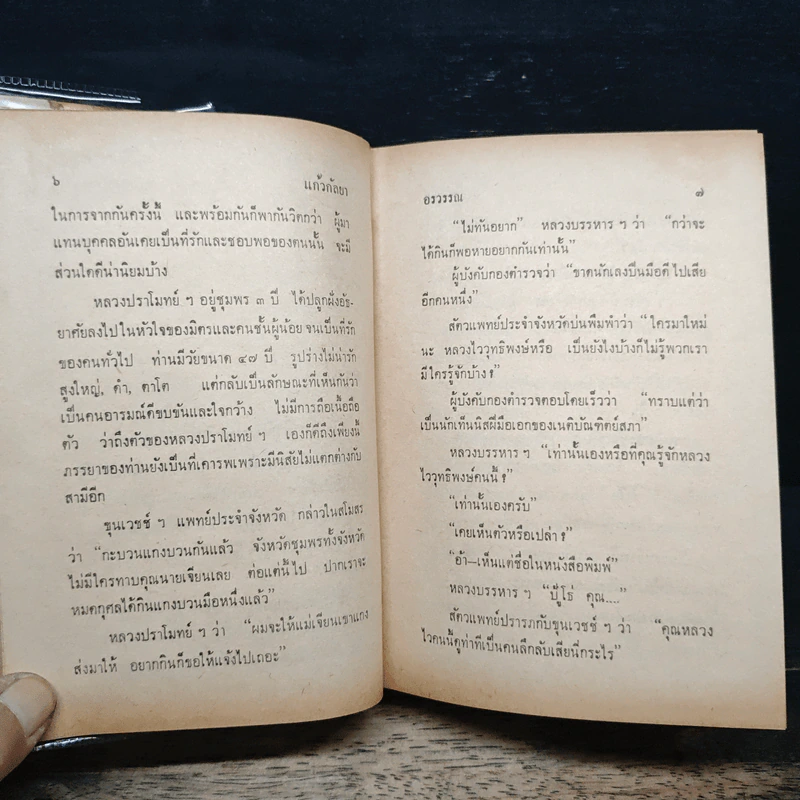 ๖ แก้วกัลยา
ในการจากกันครั้งนี้ และพร้อมกันก็พากันวิตกว่า ผู้มา
แทนบุคคลอันเคยเป็นที่รักและชอบพอของคนนั้น จะมี
ส่วนใดดีน่านิยมบ้าง
หลวงปราโมทย์ ฯ อยู่ชุมพร ๓ ปี ได้ปลูกฝังอัธ-
ยาศัยลงไปในหัวใจของมิตรและคนชั้นผู้น้อย จนเป็นที่รัก
ของคนทั่วไป ท่านมีวัยขนาด ๔๗ ปี รูปร่างไม่น่ารัก
สูงใหญ่, ดำ, ตาโต แต่กลับเป็นลักษณะที่เห็นกันว่า
เป็นคนอารมณ์ดีขบขันและใจกว้าง ไม่มีการถือเนื้อถือ
ตัว ว่าถึงตัวของหลวงปราโมทย์ ฯ เองก็ดีถึงเพียงนี้
ภรรยาของท่านยังเป็นที่เคารพเพราะมีนิสัยไม่แตกต่างกับ
สามีอีก
ขุนเวชช์ ฯ แพทย์ประจำจังหวัด กล่าวในสโมสร
ว่า “กะบวนแกงบวนกันแล้ว จังหวัดชุมพรทั้งจังหวัด
ไม่มีใครทาบคุณนายเจียนเลย ต่อแต่นี้ไป ปากเราจะ
หมดกุศลได้กินแกงบวนมือหนึ่งแล้ว”
หลวงปราโมทย์ ฯ ว่า “ผมจะให้แม่เจียนเขาแกง
ส่งมาให้ อยากกินก็ขอให้แจ้งไปเถอะ”
อรวรรณ ๗
“ไม่ทันอยาก” หลวงบรรหาร ฯ ว่า “กว่าจะ
ได้กินก็พอหายอยากกันเท่านั้น”
ผู้บังคับกองตำรวจว่า “ขาดนักเลงปืนมือดีไปเสีย
อีกคนหนึ่ง”
สัตวแพทย์ประจำจังหวัดบ่นพึมพำว่า “ใครมาใหม่
นะ หลวงไววุทธิพงษ์หรือ เป็นยังไงบ้างก็ไม่รู้พวกเรา
มีใครรู้จักบ้าง ?”
ผู้บังคับกองตำรวจตอบโดยเร็วว่า “ทราบแต่ว่า
เป็นนักเท็นนิสฝีมือเอกของเนติบัณฑิตย์สภา”
หลวงบรรหาร ฯ “เท่านั้นเองหรือที่คุณรู้จักหลวง
ไววุทธิพงษ์คนนี้ ?”
“เท่านั้นเองครับ”
“เคยเห็นตัวหรือเปล่า ?”
“อ้า—เห็นแต่ชื่อในหนังสือพิมพ์”
หลวงบรรหาร ฯ “ปู้โธ่ คุณ....”
สัตวแพทย์ปรารภกับขุนเวชช์ ฯ ว่า “คุณหลวง
ไวคนนี้ดูท่าทีเป็นคนลึกลับเสียนี่กระไร”